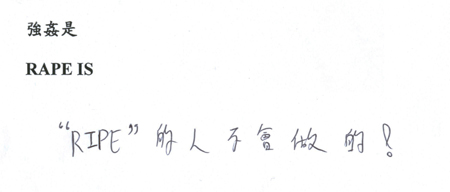 強姦是
RAPE IS
“RIPE” 的人不會做的!